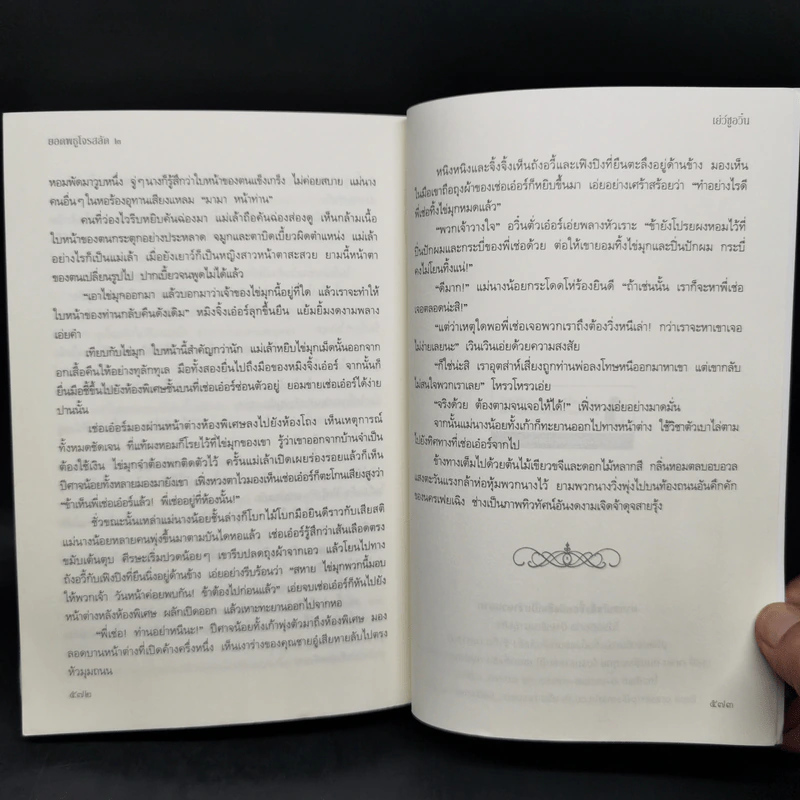 ยอดพธูโจรสลัด ๒
หอมพัดมาวูบหนึ่ง จู่ๆ นางก็รู้สึกว่าใบหน้าของตนแข็งเกร็ง ไม่ค่อยสบาย แม่นาง
คนอื่นๆ ในหอร้องอุทานเสียงแหลม “มามา หน้าท่าน”
คนที่ว่องไวรีบหยิบคันฉ่องมา แม่เล้าถือคันฉ่องส่องดู เห็นกล้ามเนื้อ
ใบหน้าของตนกระตุกอย่างประหลาด จมูกและตาบิดเบี้ยวผิดตำแหน่ง แม่เล้า
อย่างไรก็เป็นแม่เล้า เมื่อยังเยาว์ก็เป็นหญิงสาวหน้าตาสะสวย ยามนี้หน้าตา
ของตนเปลี่ยนรูปไป ปากเบี้ยวจนพูดไม่ได้แล้ว
“เอาไข่มุกออกมา แล้วบอกมาว่าเจ้าของไข่มุกนี้อยู่ที่ใด แล้วเราจะทำให้
ใบหน้าของท่านกลับคืนดังเดิม” หมิงจิ้งเอ๋อร์ลุกขึ้นยืน แย้มยิ้มงดงามพลาง
เอ่ยคำ
เทียบกับไข่มุก ใบหน้านี้สำคัญกว่านัก แม่เล้าหยิบไข่มุกเม็ดนั้นออกจาก
อกเสื้อคืนให้อย่างทุลักทุเล มือทั้งสองยื่นไปถึงมือของหมิงจิ้งเอ๋อร์ จากนั้นก็
ยื่นมือชี้ขึ้นไปยังห้องพิเศษชั้นบนที่เซ่อเอ๋อร์ซ่อนตัวอยู่ ยอมขายเซ่อเอ๋อร์ได้ง่าย
ปานนั้น
เซ่อเอ๋อร์มองผ่านหน้าต่างห้องพิเศษลงไปยังห้องโถง เห็นเหตุการณ์
ทั้งหมดชัดเจน ที่แท้ผงหอมก็โรยไว้ที่ไข่มุกของเขา รู้ว่าเขาออกจากบ้านจำเป็น
ต้องใช้เงิน ไข่มุกจำต้องพกติดตัวไว้ ครั้นแม่เล้าเปิดเผยร่องรอยแล้วก็เห็น
ปีศาจน้อยทั้งหลายมองมายังเขา เฟิ่งหวงตาไวมองเห็นเซ่อเอ๋อร์ก็ตะโกนเสียงสูงว่า
“ข้าเห็นพี่เซ่อเอ๋อร์แล้ว! พี่เซ่ออยู่ที่ห้องนั้น!”
ชั่วขณะนั้นเหล่าแม่นางน้อยชั้นล่างก็โบกไม้โบกมือยินดีราวกับเสียสติ
แม่นางน้อยหลายคนพุ่งขึ้นมาตามบันไดหอแล้ว เซ่อเอ๋อร์รู้สึกว่าเส้นเลือดตรง
ขมับเต้นตุบ ศีรษะเริ่มปวดน้อยๆ เขารีบปลดถุงผ้าจากเอว แล้วโยนไปทาง
ถังอวี้กับเฟิงปิงที่ยืนนิ่งอยู่ด้านข้าง เอ่ยอย่างรีบร้อนว่า “สหาย ไข่มุกพวกนี้มอบ
ให้พวกเจ้า วันหน้าค่อยพบกัน! ข้าต้องไปก่อนแล้ว” เอ่ยจบเซ่อเอ๋อร์ก็หันไปยัง
หน้าต่างหลังห้องพิเศษ ผลักเปิดออก แล้วเหาะทะยานออกไปจากหอ
“พี่เซ่อ! ท่านอย่าหนีนะ!” ปีศาจน้อยทั้งเก้าพุ่งตัวมาถึงห้องพิเศษ มอง
ลอดบานหน้าต่างที่เปิดค้างครึ่งหนึ่ง เห็นเงาร่างของคุณชายอู๋เสียหายลับไปตรง
หัวมุมถนน
๕๗๒
เยวี่ยชูอวิ้น
หนิงหนิงและจิ้งจิ้งเห็นถังอวี้และเฟิงปิงที่ยืนตะลึงอยู่ด้านข้าง มองเห็น
ในมือเขาถือถุงผ้าของเซ่อเอ๋อร์ก็หยิบขึ้นมา เอ่ยอย่างเศร้าสร้อยว่า “ทำอย่างไรดี
พี่เซ่อทิ้งไข่มุกหมดแล้ว”
“พวกเจ้าวางใจ” อวิ๋นตั่วเอ๋อร์เอ่ยพลางหัวเราะ “ข้ายังโปรยผงหอมไว้ที่
ปิ่นปักผมและกระบี่ของพี่เซ่อด้วย ต่อให้เขายอมทิ้งไข่มุกและปิ่นปักผม กระบี่
คงไม่โยนทิ้งแน่!”
“ดีมาก!” แม่นางน้อยกระโดดโห่ร้องยินดี “ถ้าเช่นนั้น เราก็จะหาพี่เซ่อ
เจอตลอดน่ะสิ!”
“แต่ว่าเหตุใดพอพี่เซ่อเจอพวกเราถึงต้องวิ่งหนีเล่า! กว่าเราจะหาเขาเจอ
ไม่ง่ายเลยนะ” เวินเวินเอ่ยด้วยความสงสัย
“ก็ใช่น่ะสิ เราอุตส่าห์เสี่ยงถูกท่านพ่อลงโทษหนีออกมาหาเขา แต่เขากลับ
ไม่สนใจพวกเราเลย” โหรวโหรวเอ่ย
“จริงด้วย ต้องตามจนเจอให้ได้!” เฟิ่งหวงเอ่ยอย่างมาดมั่น
จากนั้นแม่นางน้อยทั้งเก้าก็ทะยานออกไปทางหน้าต่าง ใช้วิชาตัวเบาไล่ตาม
ไปยังทิศทางที่เซ่อเอ๋อร์จากไป
ข้างทางเต็มไปด้วยต้นไม้เขียวขจีและดอกไม้หลากสี กลิ่นหอมตลบอบอวล
แสงตะวันแรงกล้าห่อหุ้มพวกนางไว้ ยามพวกนางวิ่งพุ่งไปบนท้องถนนอันคึกคัก
ของนครเฟยเฉิง ช่างเป็นภาพทิวทัศน์อันงดงามเจิดจ้าดุจสายรุ้ง
๕๗๓